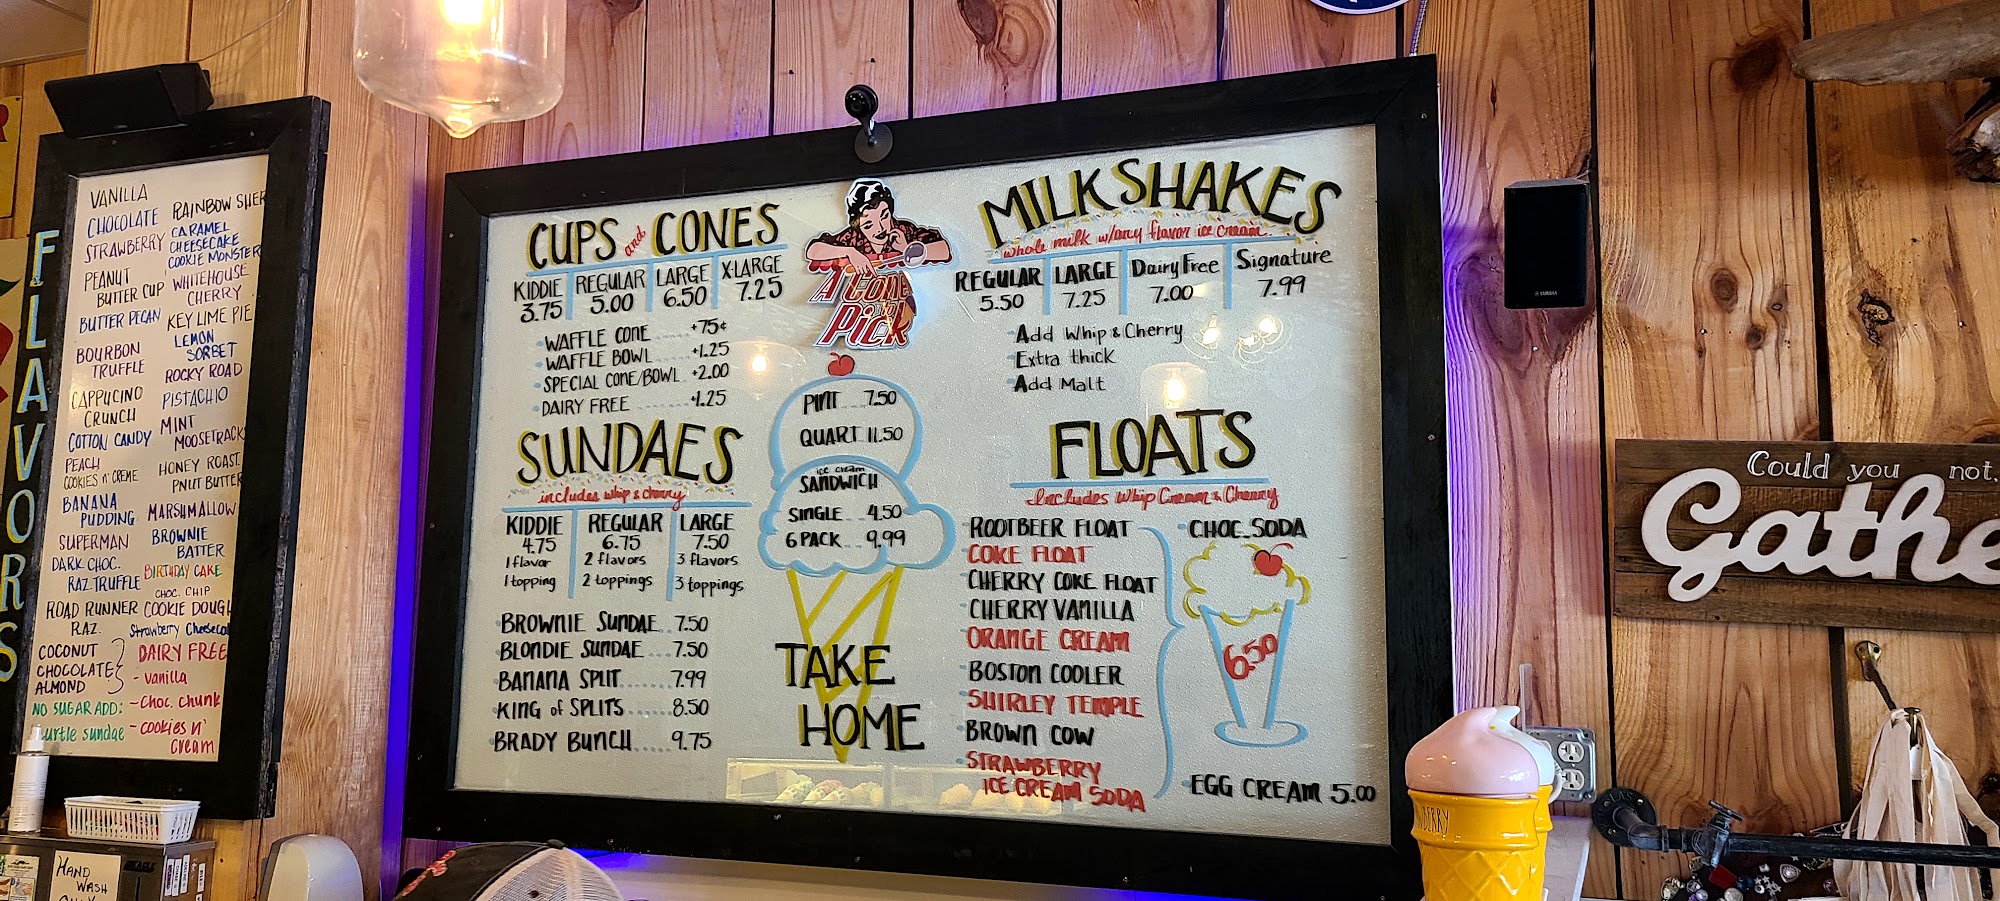 FLAVORS
VANILLA
CHOCOLATE
STRAWBERRY
PEANUT
BUTTER CUP
BUTTER PECAN
BOURBON
TRUFFLE
CAPPUCINO
CRUNCH
COTTON CANDY
PEACH
COOKIES N' CREME
BANANA
PUDDING
SUPERMAN
DARK CHOC.
RAZ. TRUFFLE
ROAD RUNNER
RAZ.
COCONUT
CHOCOLATE
ALMOND
NO SUGAR ADD:
turtle sundae
RAINBOW SHER
CARAMEL
CHEESECAKE
COOKIE MONSTER
WHITEHOUSE
CHERRY
KEY LIME PIE
LEMON
SORBET
ROCKY ROAD
PISTACHIO
MINT
MOOSETRACK
HONEY ROAST.
PNUT BUTTER
MARSHMALLOW
BROWNIE
BATTER
BIRTHDAY CAKE
CHOC. CHIP
COOKIE DOUGH
Strawberry Cheeseca
DAIRY FREE
- vanilla
- Choc. chunk
- cookies n'
cream
CUPS and CONES
KIDDIE REGULAR LARGE X-LARGE
3.75 5.00 6.50 7.25
WAFFLE CONE +75¢
WAFFLE BOWL +1.25
SPECIAL CONE/BOWL +2.00
DAIRY FREE +1.25
SUNDAES
includes whip & cherry
KIDDIE REGULAR LARGE
4.75 6.75 7.50
1 flavor 2 flavors 3 flavors
1 topping 2 toppings 3 toppings
BROWNIE SUNDAE 7.50
BLONDIE SUNDAE 7.50
BANANA SPLIT 7.99
KING of SPLITS 8.50
BRADY BUNCH 9.75
A Cone
to
Pick
PINT 7.50
QUART 11.50
ice cream
SANDWICH
SINGLE 4.50
6 PACK 9.99
TAKE
HOME
MILKSHAKES
whole milk w/any flavor ice cream
REGULAR LARGE Dairy Free Signature
5.50 7.25 7.00 7.99
Add Whip & Cherry
Extra thick
Add Malt
FLOATS
Includes Whip Cream & Cherry
ROOTBEER FLOAT
COKE FLOAT
CHERRY COKE FLOAT
CHERRY VANILLA
ORANGE CREAM
BOSTON COOLER
SHIRLEY TEMPLE
BROWN COW
STRAWBERRY
ICE CREAM SODA
CHOC. SODA
6.50
EGG CREAM 5.00
YAMAHA
Could you not,
Gathe
HAND
WASH